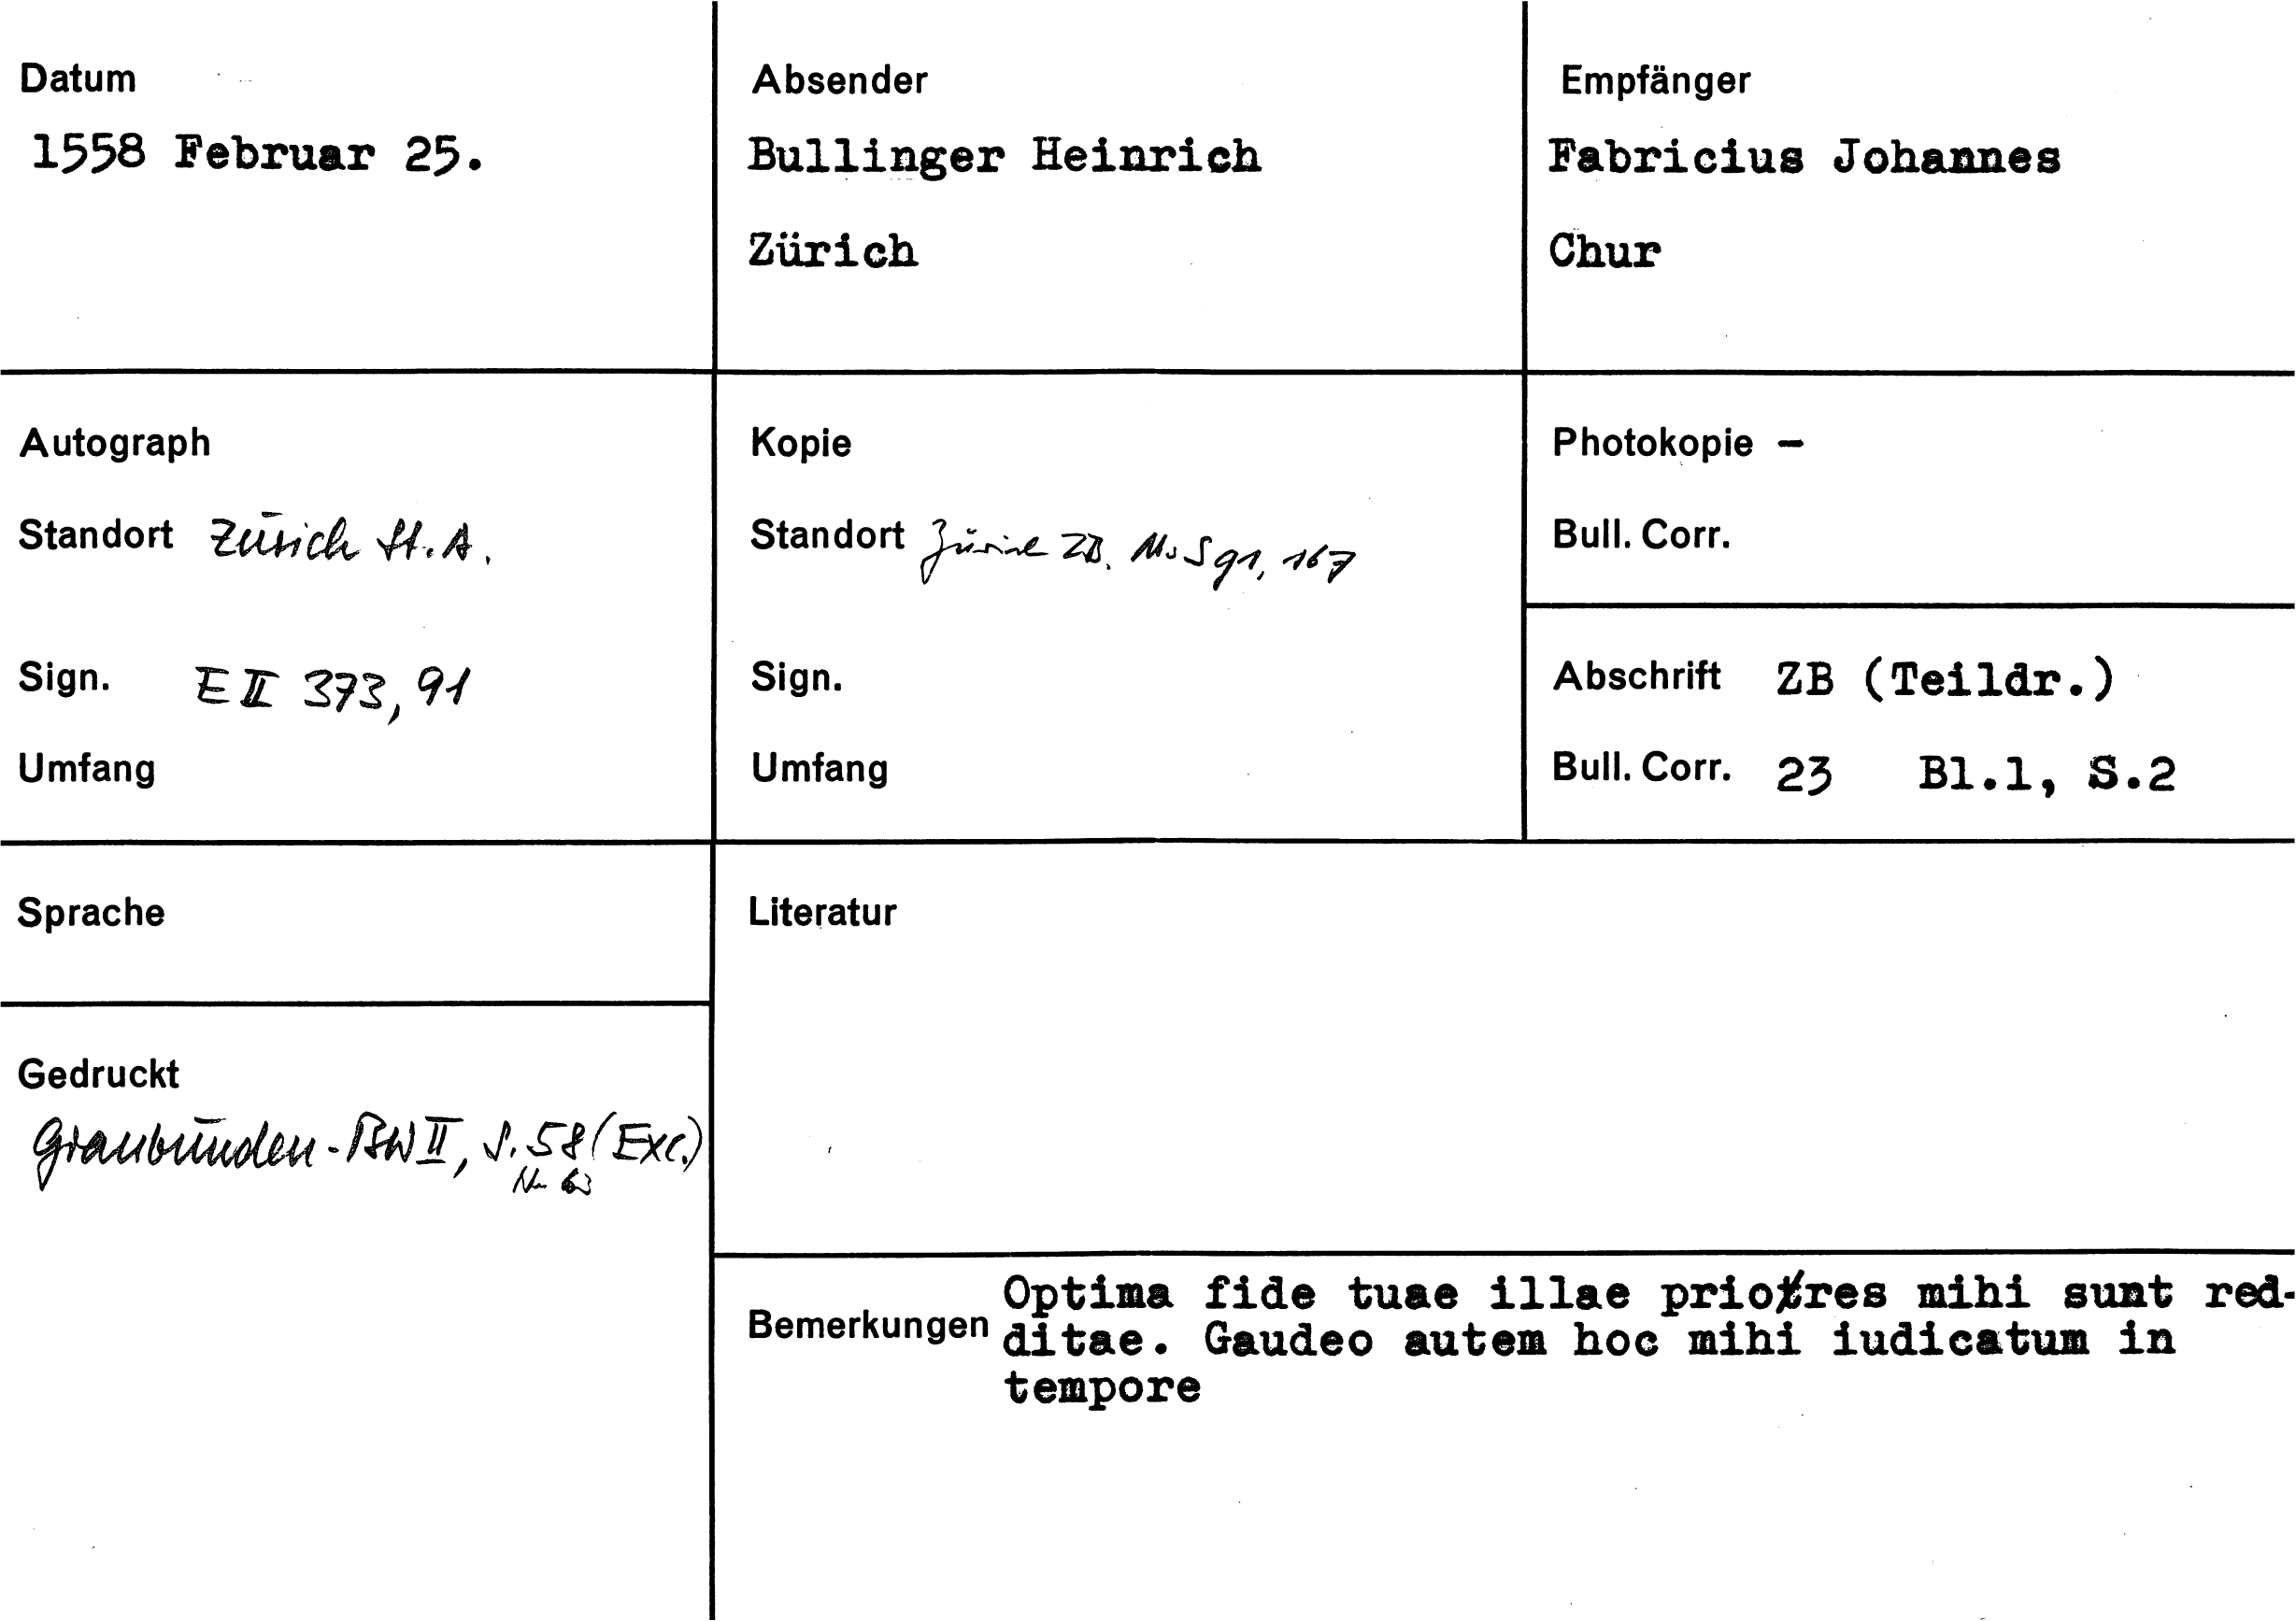 Datum
1558 Februar 25.
Absender
Bullinger Heinrich
Zürich
Empfänger
Fabricius Johannes
Chur
Autograph
Standort Zürich St. A.
Sign. E II 373, 91
Umfang
Kopie
Standort Zürich ZB. Ms S 91, 167
Sign.
Umfang
Photokopie –
Bull. Corr.
Abschrift ZB (Teildr.)
Bull. Corr. 23 Bl.1, S.2
Sprache
Gedruckt
Graubünden-BW II, S. 58 (Exc.)
Nr. 63
Literatur
Bemerkungen
Optima fide tuae illae priores mihi sunt red-
ditae. Gaudeo autem hoc mihi iudicatum in
tempore